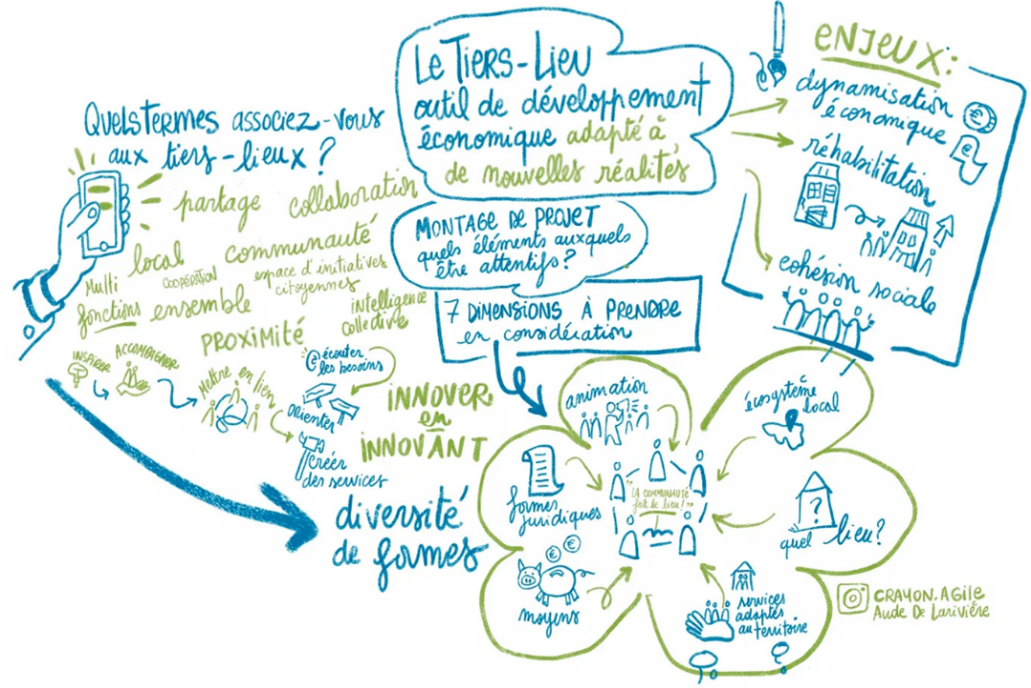 Le Tiers-Lieu
outil de développement
économique adapté à
de nouvelles réalités
ENJEUX:
dynamisation
économique
réhabilitation
cohésion sociale
Quels termes associez-vous
aux tiers-lieux ?
partage collaboration
local communauté
Multi
fonctions
COOPÉRATION
espace d'initiatives
citoyennes
ensemble
intelligence
collective
PROXIMITÉ
INSPIRER
ACCOMPAGNER
Mettre en lien
écouter
les besoins
Orienter
Créer
des services
INNOVER
en
INNOVANT
diversité
de formes
MONTAGE DE PROJET
quels éléments auxquels
être attentifs ?
7 DIMENSIONS À PRENDRE
en considération
animation
écosystème
local
formes
juridiques
"LA COMMUNAUTÉ
fait le lieu!"
?
quel lieu?
€ €
moyens
services
adaptés
au territoire
CRAYON.AGILE
Aude De Larivière